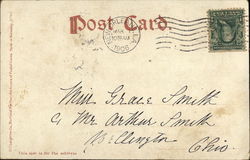 Post Card.
NEW ORLEANS, LA.
MAR
1906
Miss Grace Smith
c/ Mr Arthur Smith
Wellington
Ohio.
This space is for the address